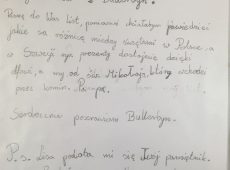 z Bullerbyn.
Piszę do Was list, ponieważ chciałam powiedzieć
jakie są różnice między świętami w Polsce, a
w Szwecji np. prezenty dostajecie dzięki
a my od św. Mikołaja, który wchodzi
przez komin.
Serdecznie pozdrawiam Bullerbyn.
P.s. Lisa podoba mi się Twój pamiętnik.